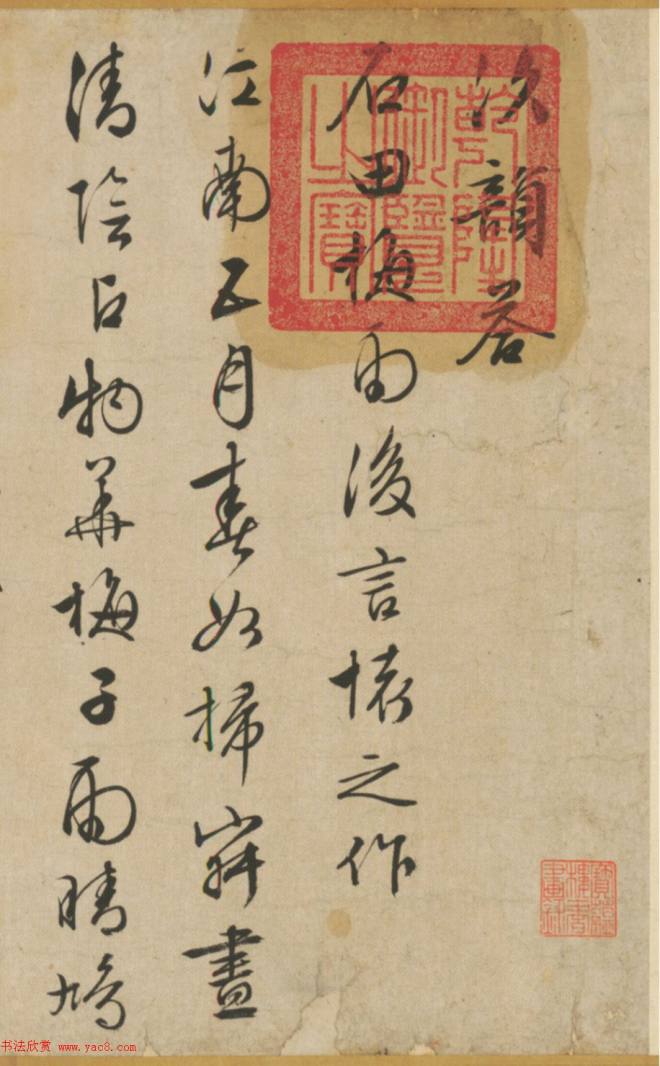 次韻答
石田梅雨後言懷之作
江南五月春如掃晝
清陰占物華梅子雨晴鳩
乾隆御覽之寶
寶蘊樓書畫錄
书法欣赏 www.yac8.com